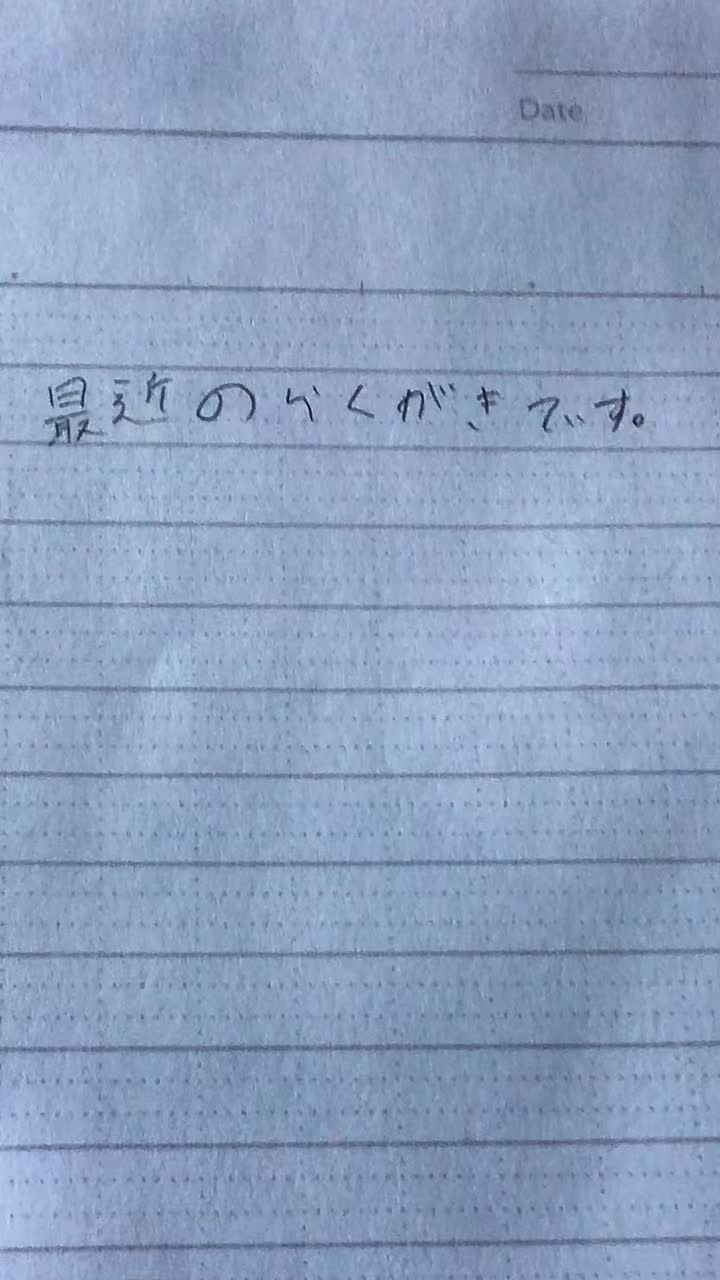 Date
最近のらくがきです。